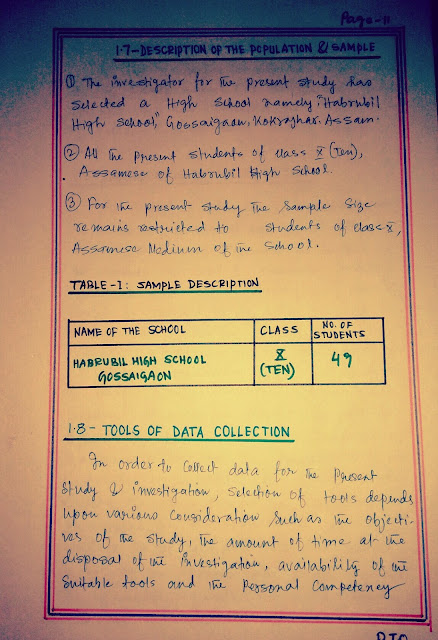 Page-11
1.7-DESCRIPTION OF THE POPULATION & SAMPLE
① The investigator for the present study has
selected a High School namely "Habrubil
High School", Gossaigaon, Kokrajhar. Assam.
② All the present students of class X (Ten),
Assamese of Habrubil High School.
③ For the present study the sample size
remains restricted to students of class X,
Assamese Medium of the School.
TABLE-I: SAMPLE DESCRIPTION
NAME OF THE SCHOOL CLASS NO. OF STUDENTS
HABRUBIL HIGH SCHOOL GOSSAIGAON X (TEN) 49
1.8- TOOLS OF DATA COLLECTION
In order to collect data for the present
study & investigation, selection of tools depends
upon various consideration such as the objecti-
ves of the study, the amount of time at the
disposal of the investigation, availability of the
suitable tools and the personal competency
PTO